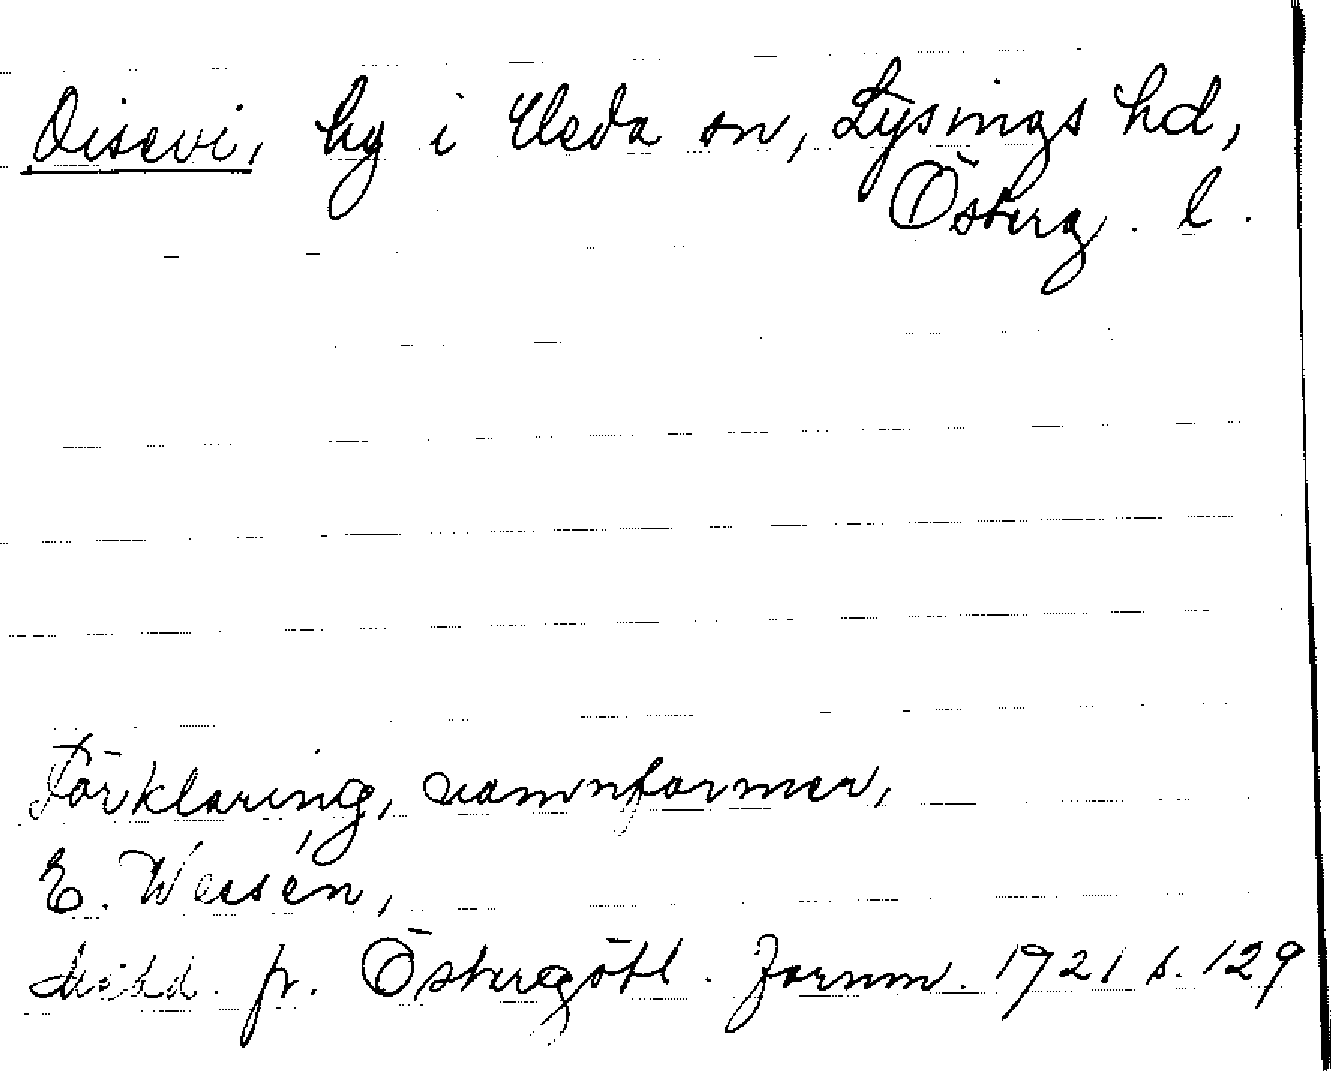 Disevi, by i Ekeda sn, Lysings hd,
Österg. l.
Förklaring, namnformer,
E. Wessén,
Medd. fr. Östergötl. Fornm. 1921 s. 129